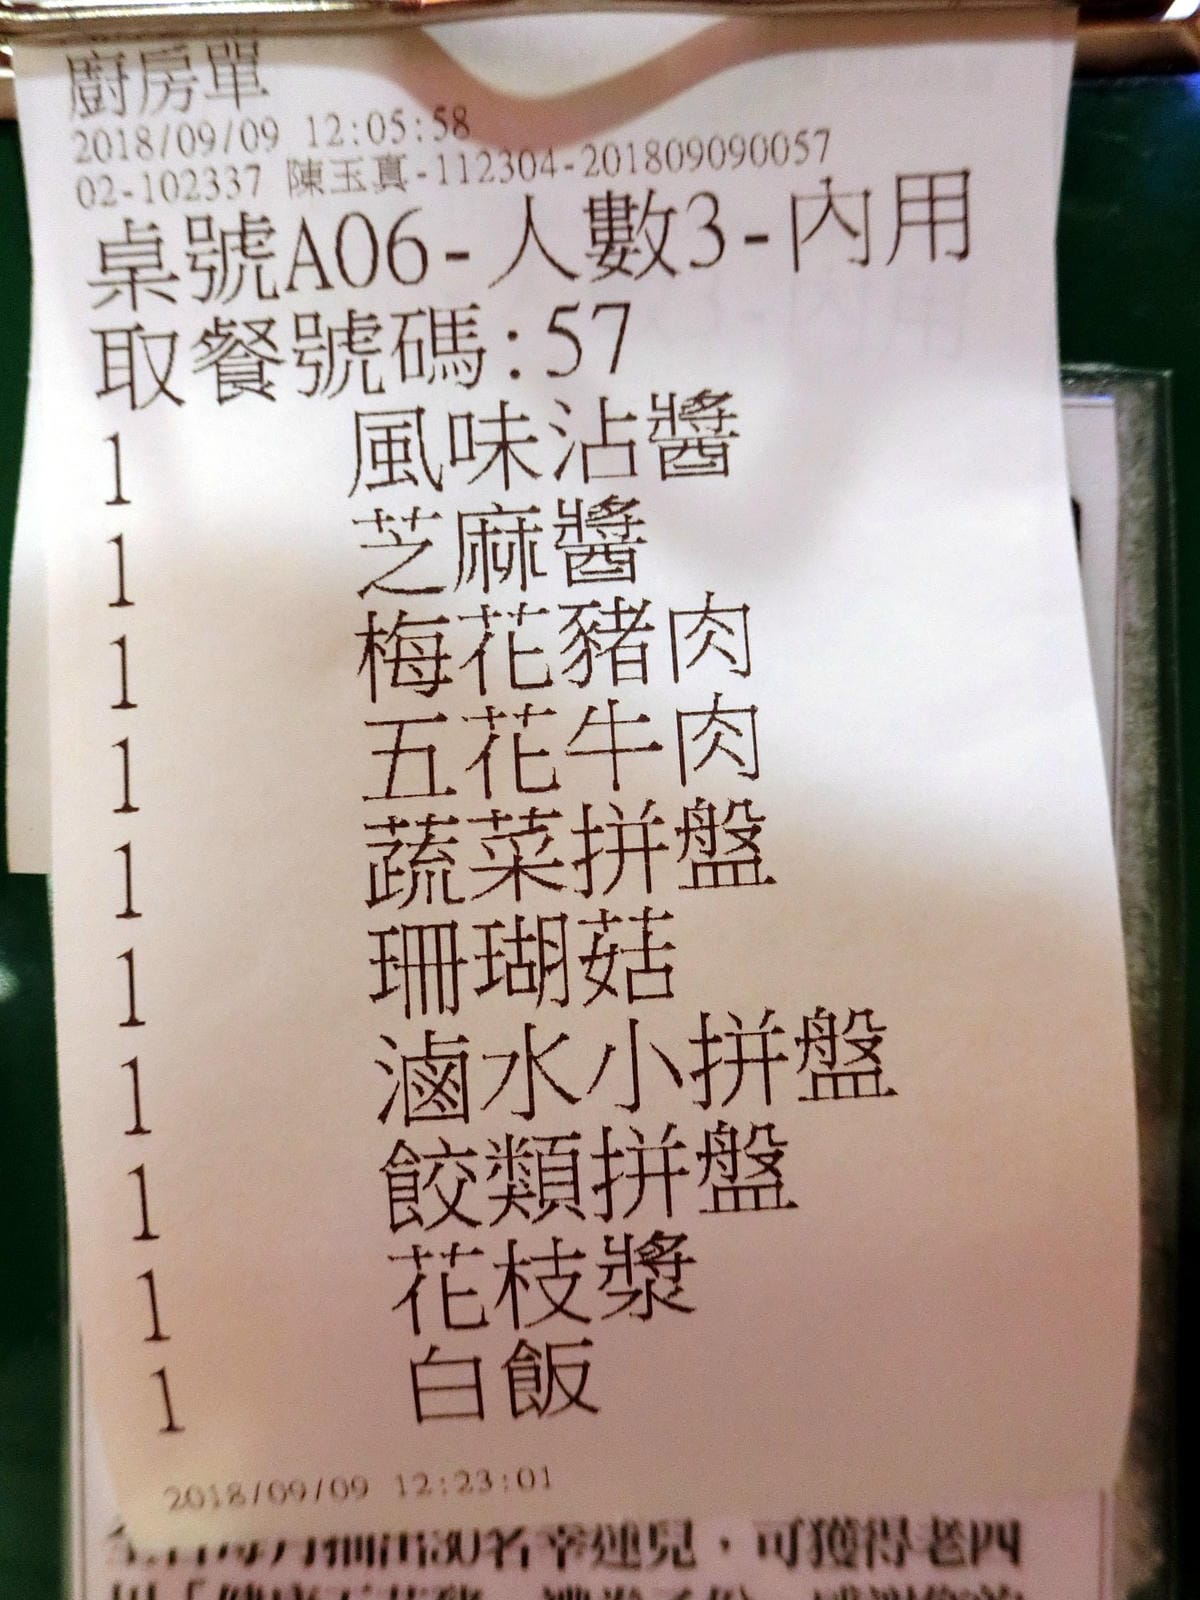 廚房單
2018/09/09 12:05:58
02-102337 陳玉真-112304-201809090057
桌號A06-人數3-內用
取餐號碼:57
1 風味沾醬
1 芝麻醬
1 梅花豬肉
1 五花牛肉
1 蔬菜拼盤
1 珊瑚菇
1 滷水小拼盤
1 餃類拼盤
1 花枝漿
1 白飯
2018/09/09 12:23:01
30名幸運兒，可獲得老四